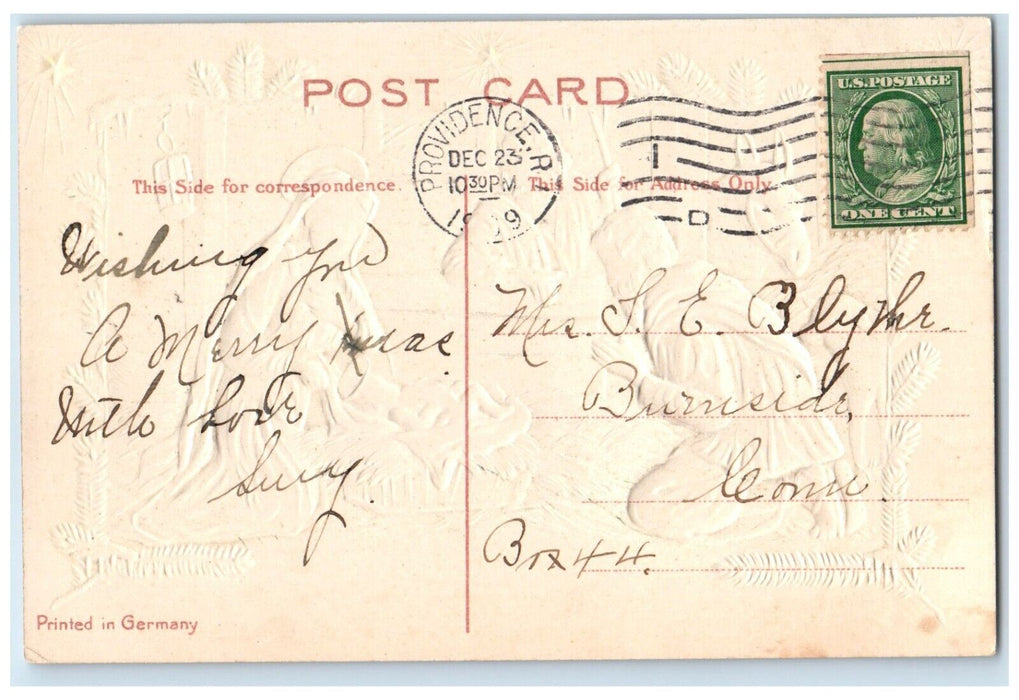 POST CARD
PROVIDENCE, R.
DEC 23
10 30 PM
19 9
I
D
U.S. POSTAGE
ONE CENT
This Side for correspondence.
This Side for Address Only.
Wishing you
A Merry Xmas
With Love
Mrs. S. E. Blythe.
Burnside,
Conn.
Box 44.
Printed in Germany